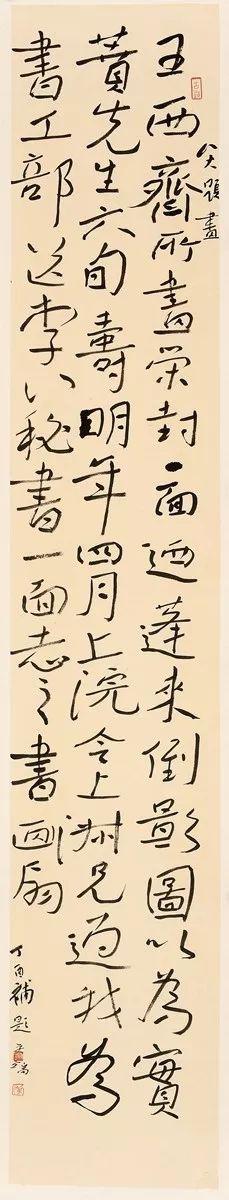 王西齊所畫榮封一面廼蓬來倒影圖以為實
八大題畫
蕡先生六旬壽明年四月上浣令上兄過我為
書工部送李八秘書一面志之書画扇
丁酉補題